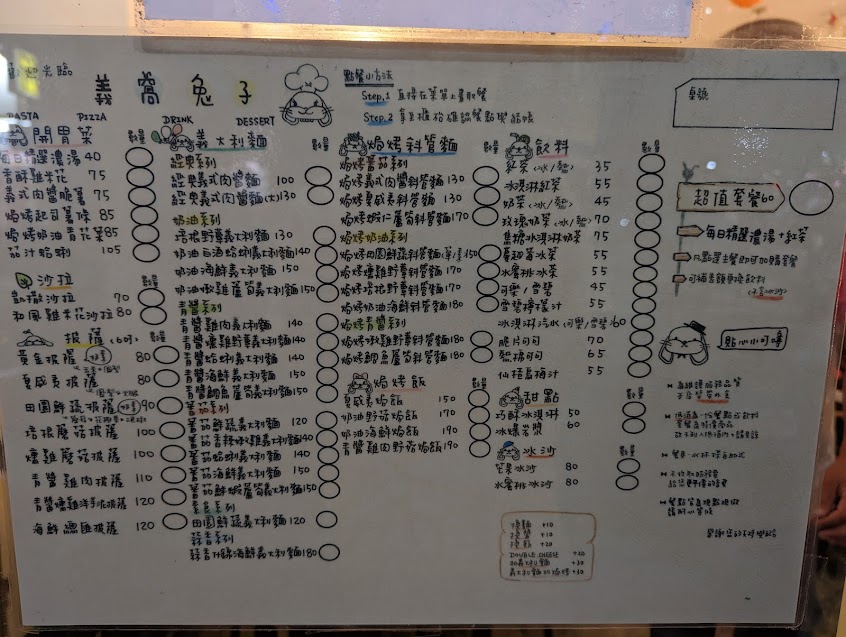 義窩兔子
PASTA PIZZA DRINK DESSERT
點餐小方法
Step.1 直接在菜單上畫記
Step.2
桌號
開胃菜 數量
每日精選濃湯 40
香酥雞米花 75
義式肉醬脆薯 75
焗烤起司薯條 85
焗烤奶油青花菜 85
茄汁蛤蜊 105
沙拉 數量
凱撒沙拉 70
和風雞米花沙拉 80
披薩 (6吋) 數量
黃金披薩 80
夏威夷披薩 80
田園鮮蔬披薩 90
培根蘑菇披薩 100
燻雞蘑菇披薩 100
青醬雞肉披薩 110
青醬燻雞洋芋泥披薩 120
海鮮總匯披薩 120
義大利麵 數量
經典系列
經典義式肉醬麵 100
經典義式肉醬麵(大) 130
奶油系列
培根野菇義大利麵 130
奶油白酒蛤蜊義大利麵 140
奶油海鮮義大利麵 150
奶油燻雞蘆筍義大利麵 150
青醬系列
青醬雞肉義大利麵 140
青醬燻雞野菇義大利麵 140
青醬蛤蜊義大利麵 140
青醬海鮮義大利麵 150
青醬鯛魚蘆筍義大利麵 150
蕃茄系列
蕃茄鮮蔬義大利麵 120
蕃茄香辣燻雞義大利麵 140
蕃茄蛤蜊義大利麵 140
蕃茄海鮮義大利麵 150
蕃茄鮮蝦蘆筍義大利麵 150
素食系列
田園鮮蔬義大利麵 120
蒜香系列
蒜香什錦海鮮義大利麵 180
焗烤斜管麵 數量
焗烤蕃茄系列
焗烤義式肉醬斜管麵 130
焗烤夏威夷斜管麵 130
焗烤蝦仁蘆筍斜管麵 170
焗烤奶油系列
焗烤田園鮮蔬斜管麵 150
焗烤燻雞野菇斜管麵 170
焗烤培根野菇斜管麵 170
焗烤奶油海鮮斜管麵 180
焗烤青醬系列
焗烤燻雞野菇斜管麵 180
焗烤鯛魚蘆筍斜管麵 180
焗烤飯 數量
夏威夷焗飯 150
奶油野菇焗飯 170
奶油海鮮焗飯 190
青醬雞肉野菇焗飯 190
飲料 數量
紅茶 (冰/熱) 35
冰淇淋紅茶 55
奶茶 (冰/熱) 45
玫瑰奶茶 (冰/熱) 70
焦糖冰淇淋奶茶 75
蔓越莓冰茶 55
水蜜桃冰茶 55
可樂/雪碧 45
雪碧檸檬汁 55
冰淇淋汽水 (可樂/雪碧) 60
脆片可可 70
熱摩卡可 65
仙楂烏梅汁 55
甜點 數量
巧酥冰淇淋 50
冰爆岩漿 60
冰沙 數量
芒果冰沙 80
水蜜桃冰沙 80
+10
+10
+20
DOUBLE CHEESE +20
加義大利麵 +30
義大利麵改焗烤 +30
超值套餐 60
每日精選濃湯+紅茶
凡點選主餐即可加購套餐
可補差額更換飲料
貼心小叮嚀